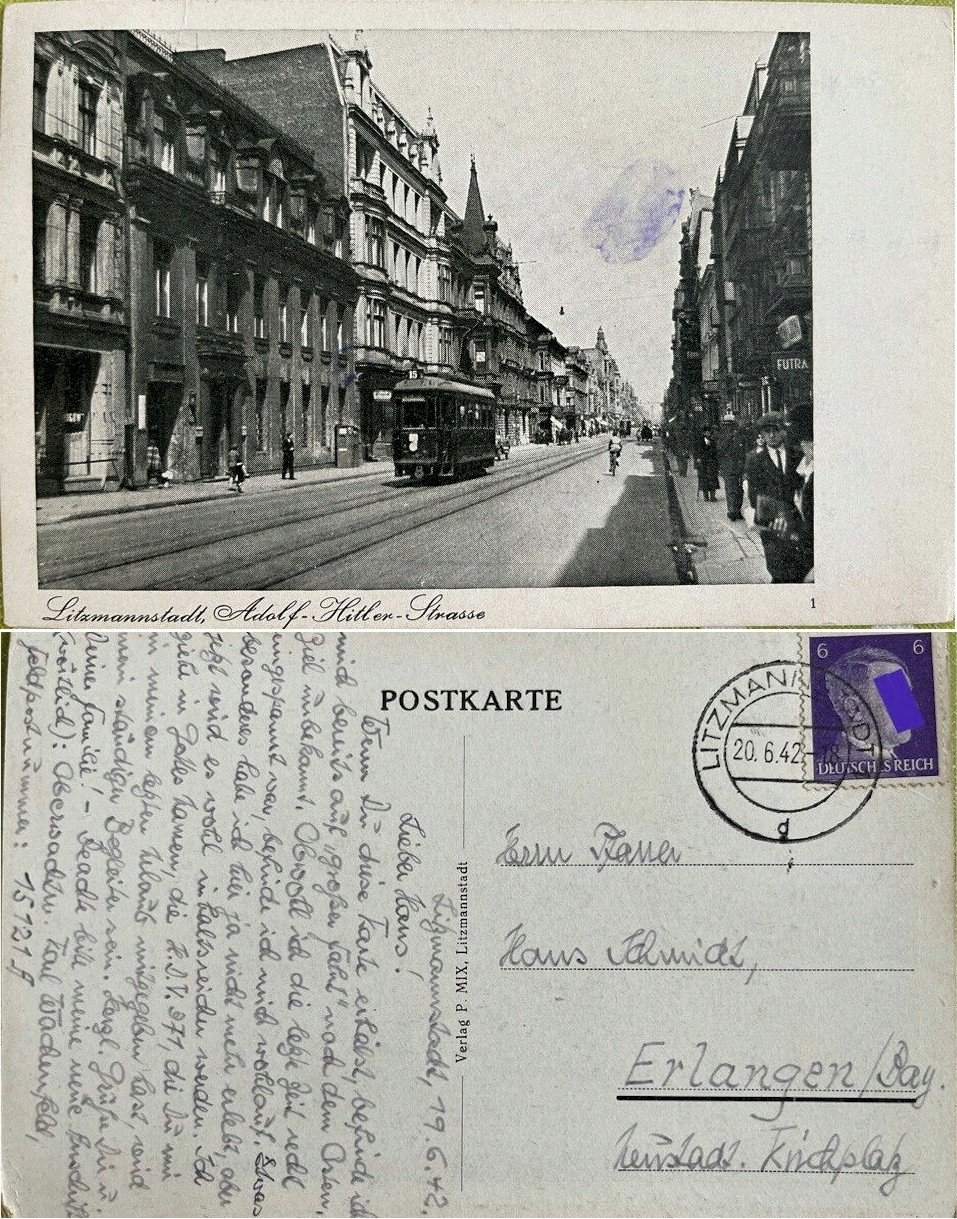 15
FUTRA
Litzmannstadt, Adolf-Hitler-Strasse
1
POSTKARTE
6 6
DEUTSCHES REICH
LITZMANNSTADT
20.6.42.-18
d
Verlag P. MIX, Litzmannstadt
Herrn Pfarrer
Hans Schmidt,
Erlangen/Bay.
Neustadt. Kirchplatz
Litzmannstadt, 19.6.42.
Lieber Hans!
Wenn Du diese Karte erhältst, befinde ich
mich bereits auf "großer Fahrt" nach dem Osten,
Ziel unbekannt. Obwohl ich die letzte Zeit recht
eingespannt war, befinde ich mich wohlauf. Etwas
besonderes habe ich hier ja nicht mehr erlebt, aber
jetzt wird es wohl in halbreichen werden. Ich
ziehe in Gottes Namen, die H.D.V. 371, die Du mir
in meinem letzten Urlaub mitgegeben hast, wird
mein ständiger Begleiter sein. Herzl. Grüße Dir u.
Deiner Familie! - Beachte bitte meine neue Anschrift
Oberwachtm. Karl Wachenfeld,
Feldpostnummer: 15121 B